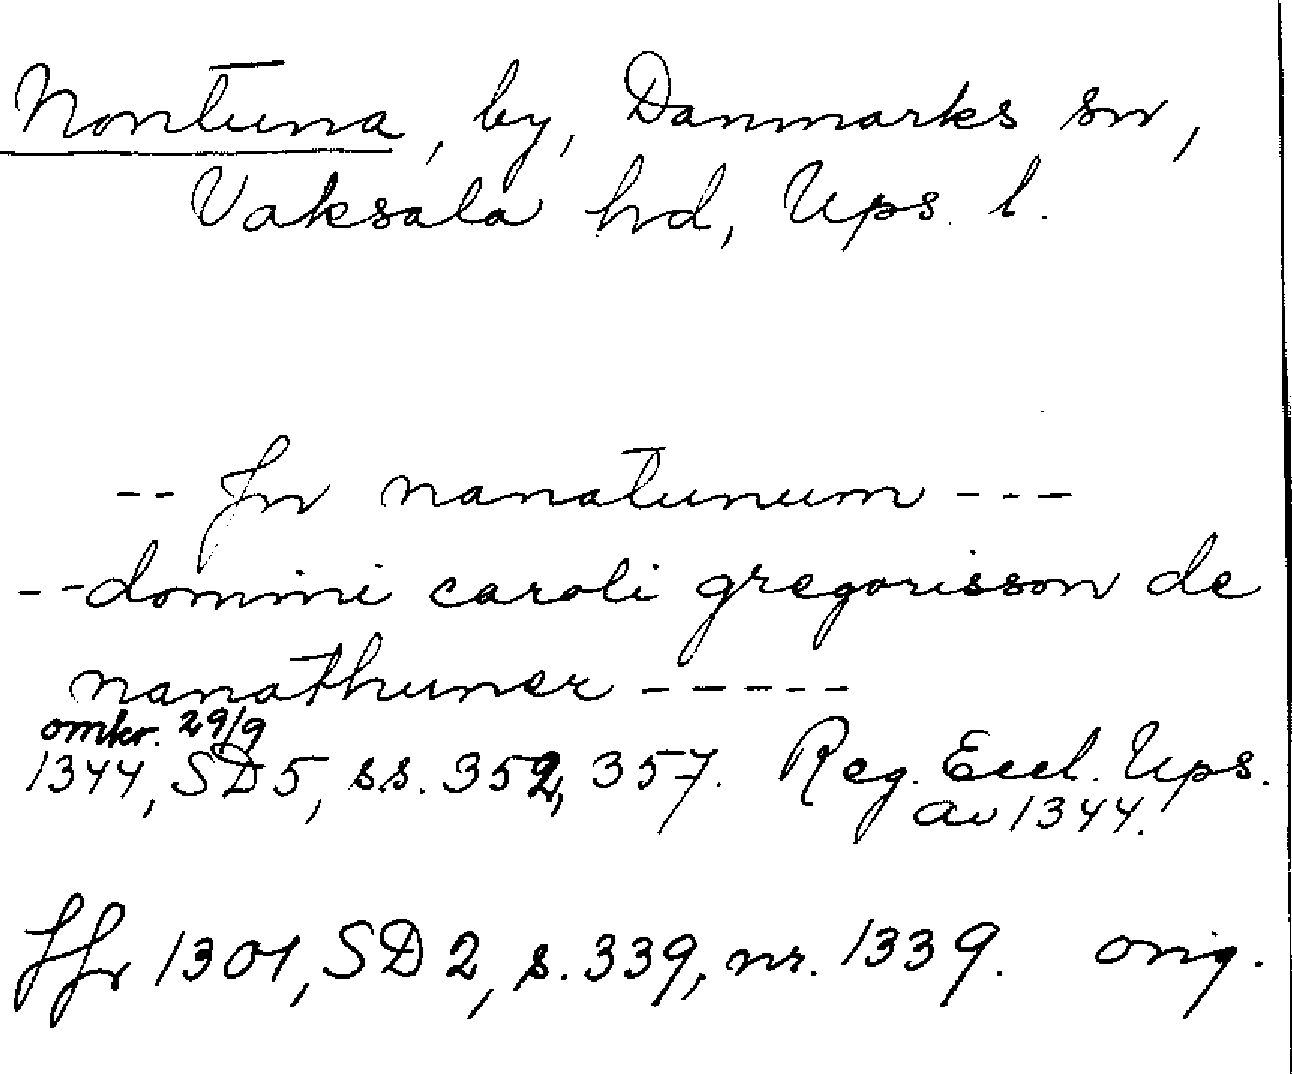 Nontuna, by, Danmarks sn,
Vaksala hd, Ups. l.
-- Jn nanatunum ---
--domini caroli gregorisson de
nanathuner -----
omkr. 29/9
1344, SD5, ss. 352, 357. Reg. Eccl. Ups.
av 1344.
Jfr 1301, SD 2, s. 339, nr. 1339. orig.